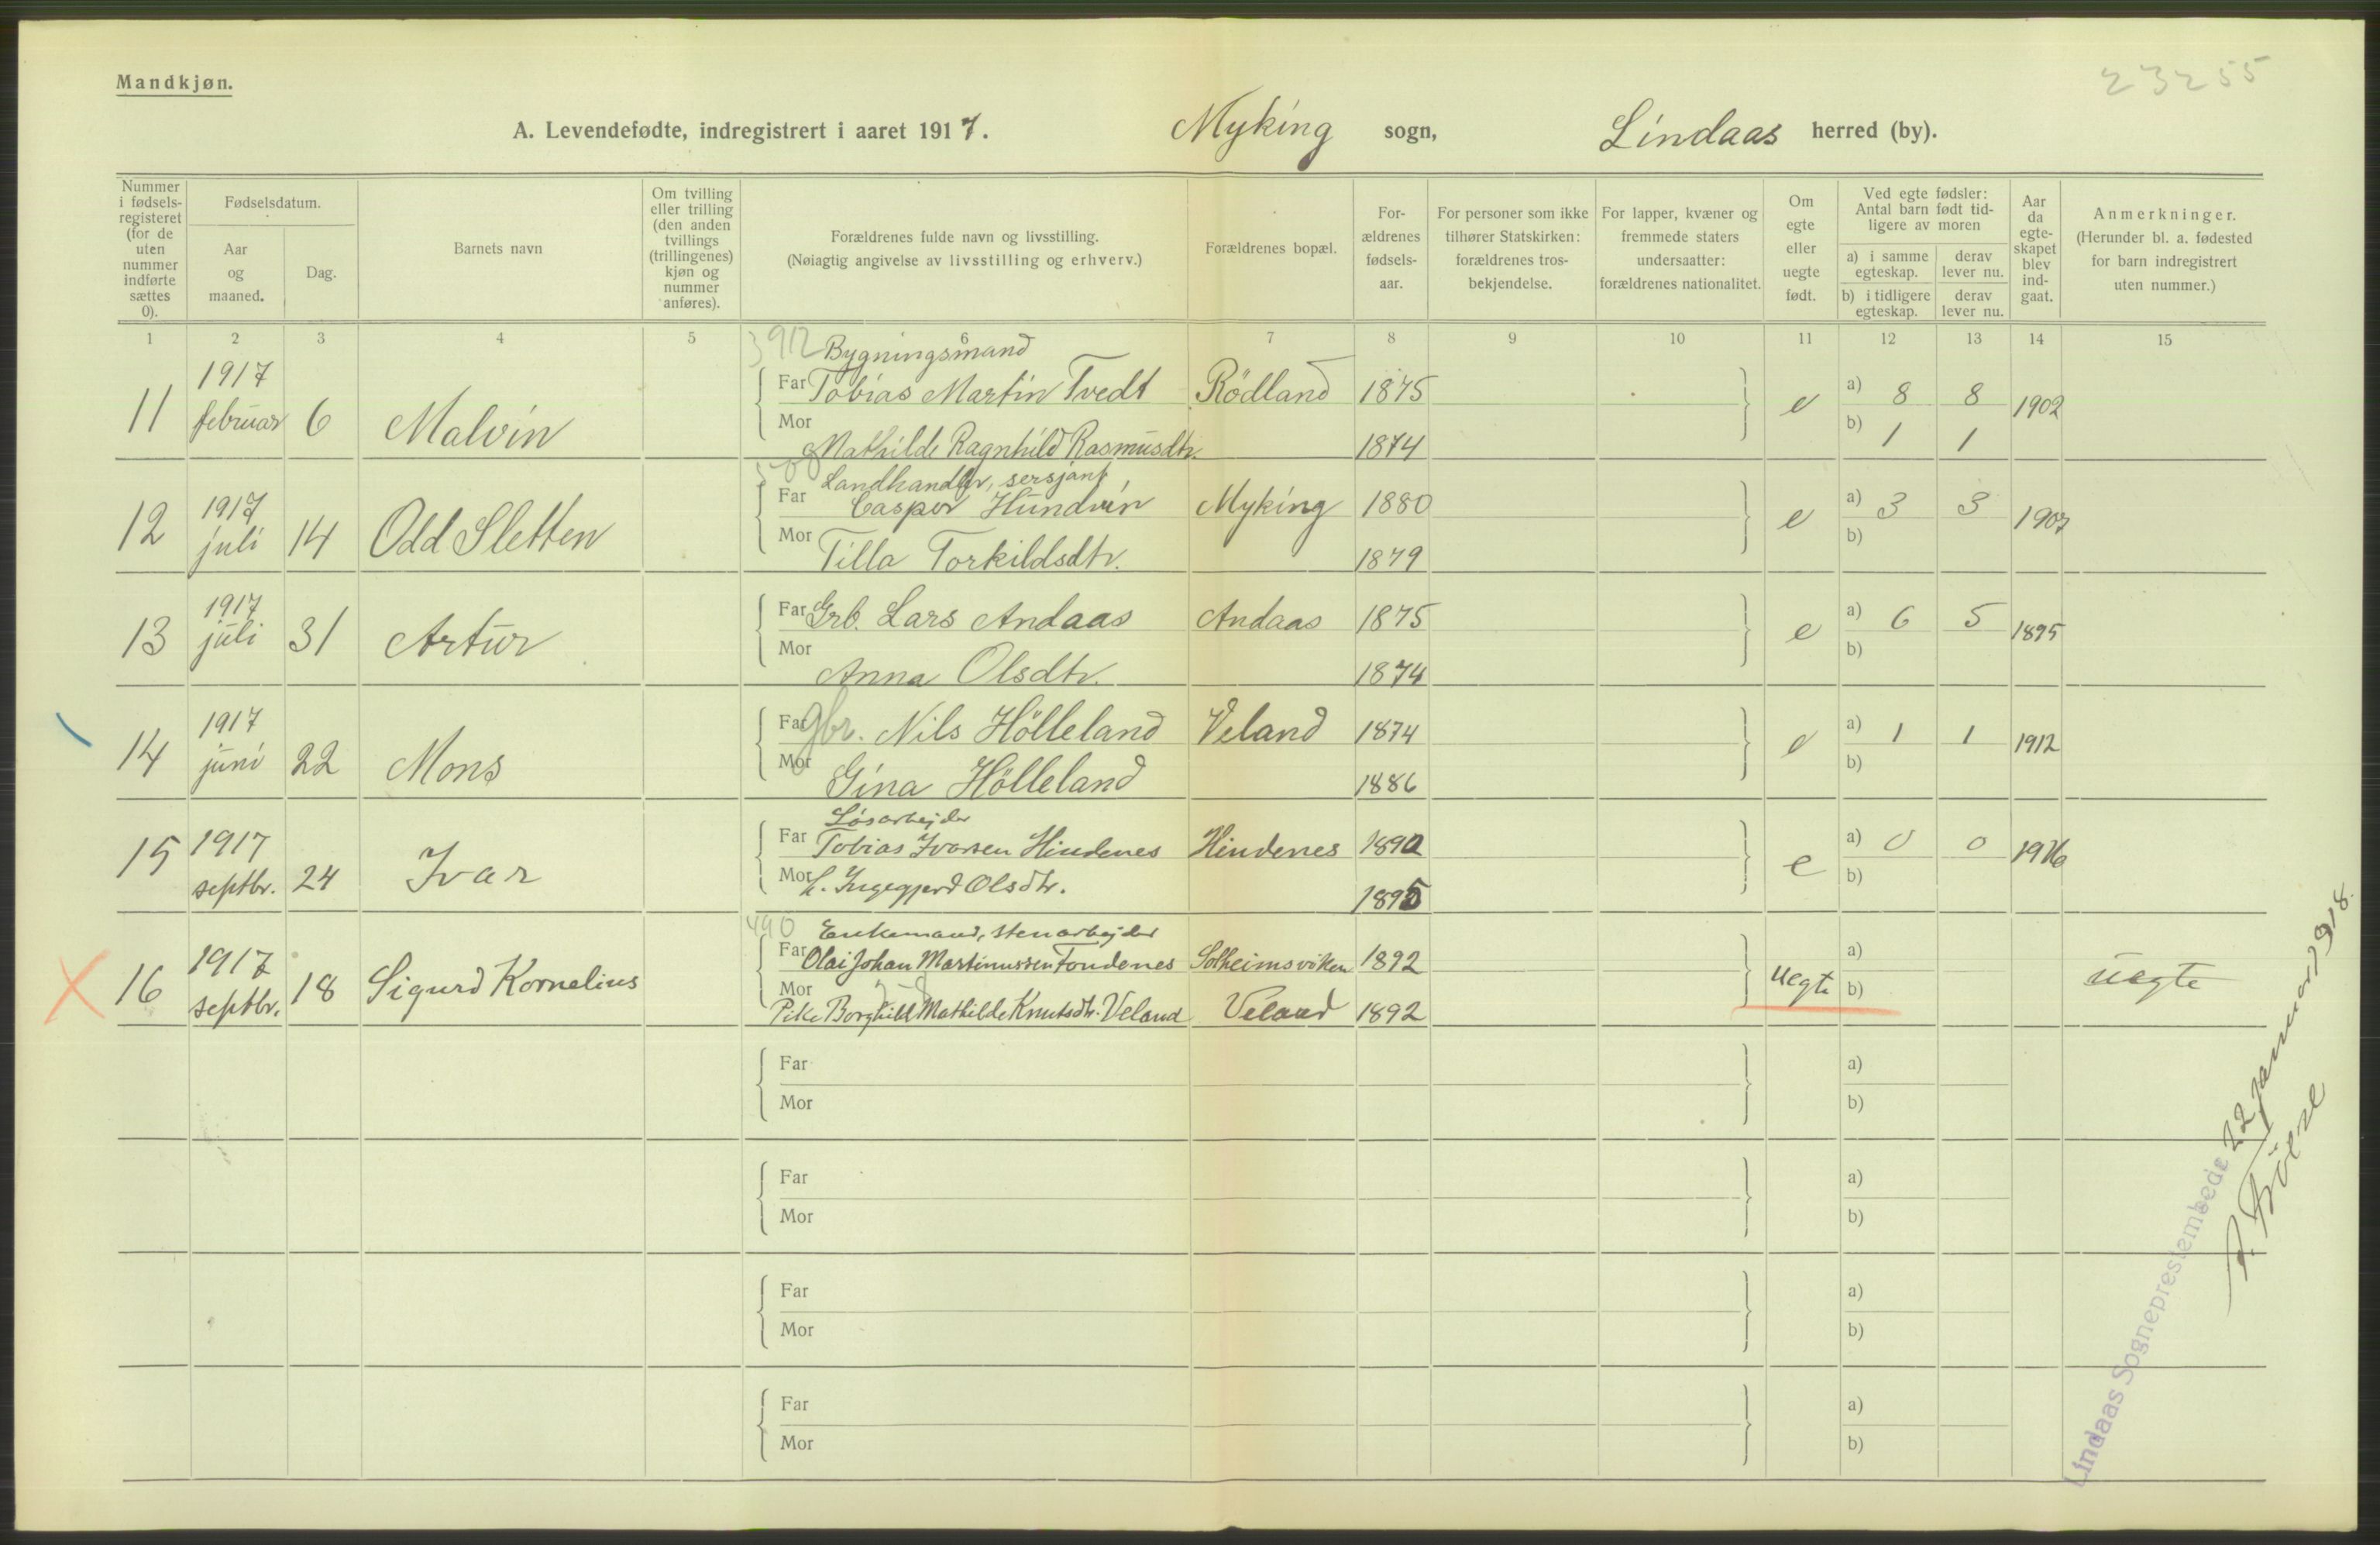 Mandkjøn.
23255
A. Levendefødte, indregistrert i aaret 1917. Myking sogn, Lindaas herred (by).
Nummer i fødsels-registeret (for de uten nummer indførte sættes 0).
Fødselsdatum.
Aar og maaned.
Dag.
Barnets navn
Om tvilling eller trilling (den anden tvillings (trillingenes) kjøn og nummer anføres).
Forældrenes fulde navn og livsstilling.
(Nøiagtig angivelse av livsstilling og erhverv.)
Forældrenes bopæl.
For-ældrenes fødsels-aar.
For personer som ikke tilhører Statskirken: forældrenes tros-bekjendelse.
For lapper, kvæner og fremmede staters undersaatter: forældrenes nationalitet.
Om egte eller uegte født.
Ved egte fødsler: Antal barn født tid-ligere av moren
a) i samme egteskap.
derav lever nu.
b) i tidligere egteskap.
derav lever nu.
Aar da egte-skapet blev ind-gaat.
Anmerkninger.
(Herunder bl. a. fødested for barn indregistrert uten nummer.)
1 2 3 4 5 6 7 8 9 10 11 12 13 14 15
Bygningsmand
11 1917 februar 6 Malvin Far Tobias Martin Tvedt Rödland 1875 e a) 8 8 1902
Mor Mathilde Ragnhild Rasmusdtr. 1874 b) 1 1
Landhandler, sersjant
12 1917 juli 14 Odd Sletten Far Casper Hundvin Myking 1880 e a) 3 3 1907
Mor Tilla Torkildsdtr. 1879 b)
13 1917 juli 31 Artur Far Grb. Lars Andaas Andaas 1875 e a) 6 5 1895
Mor Anna Olsdtr. 1874 b)
14 1917 juni 22 Mons Far gbr. Nils Hölleland Veland 1874 e a) 1 1 1912
Mor Gina Hölleland 1886 b)
Løsarbejder
15 1917 septbr. 24 Ivar Far Tobias Ivarsen Hindenes Hindenes 1890 e a) 0 0 1916
Mor h. Ingegjerd Olsdtr. 1895 b)
490 Enkemand, stenarbejder
16 1917 septbr. 18 Sigurd Kornelius Far Olai Johan Martinussen Fondenes Solheimsviken 1892 Uegte a) uegte
Mor Pike Borghild Mathilde Knutsdtr. Veland Veland 1892 b)
Far a)
Mor b)
Far a)
Mor b)
Far a)
Mor b)
Far a)
Mor b)
Lindaas Sognepresteembede 22 januar 1918.